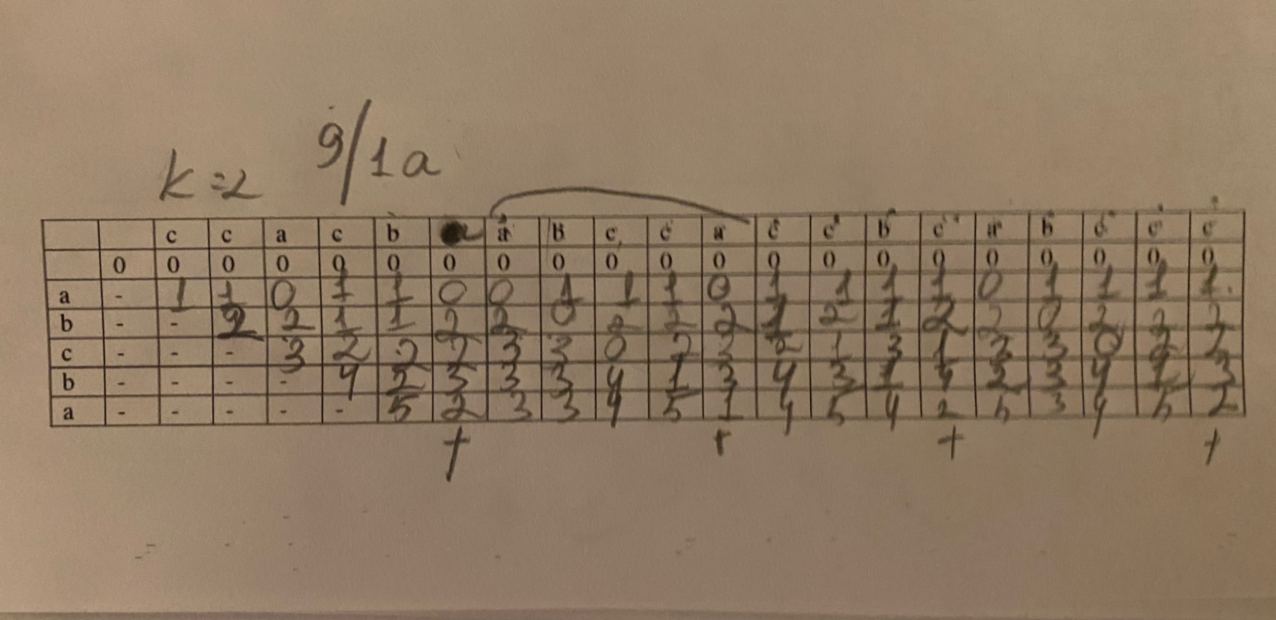 k=2 9/1a
c c a c b a a B c c a c c b c a b c c c
0 0 0 0 0 0 0 0 0 0 0 0 0 0 0 0 0 0 0 0 0
a - 1 1 0 1 1 0 0 1 1 1 0 1 1 1 1 0 1 1 1 1
b - - 2 2 1 1 2 2 0 2 2 2 1 2 1 2 2 0 2 2 2
c - - - 3 2 2 2 3 3 0 2 3 2 1 3 1 3 3 0 2 2
b - - - - 4 2 3 3 3 4 1 3 4 3 1 4 2 3 4 1 3
a - - - - - 5 2 3 3 4 5 1 4 5 4 2 5 3 4 5 2
+ + + +